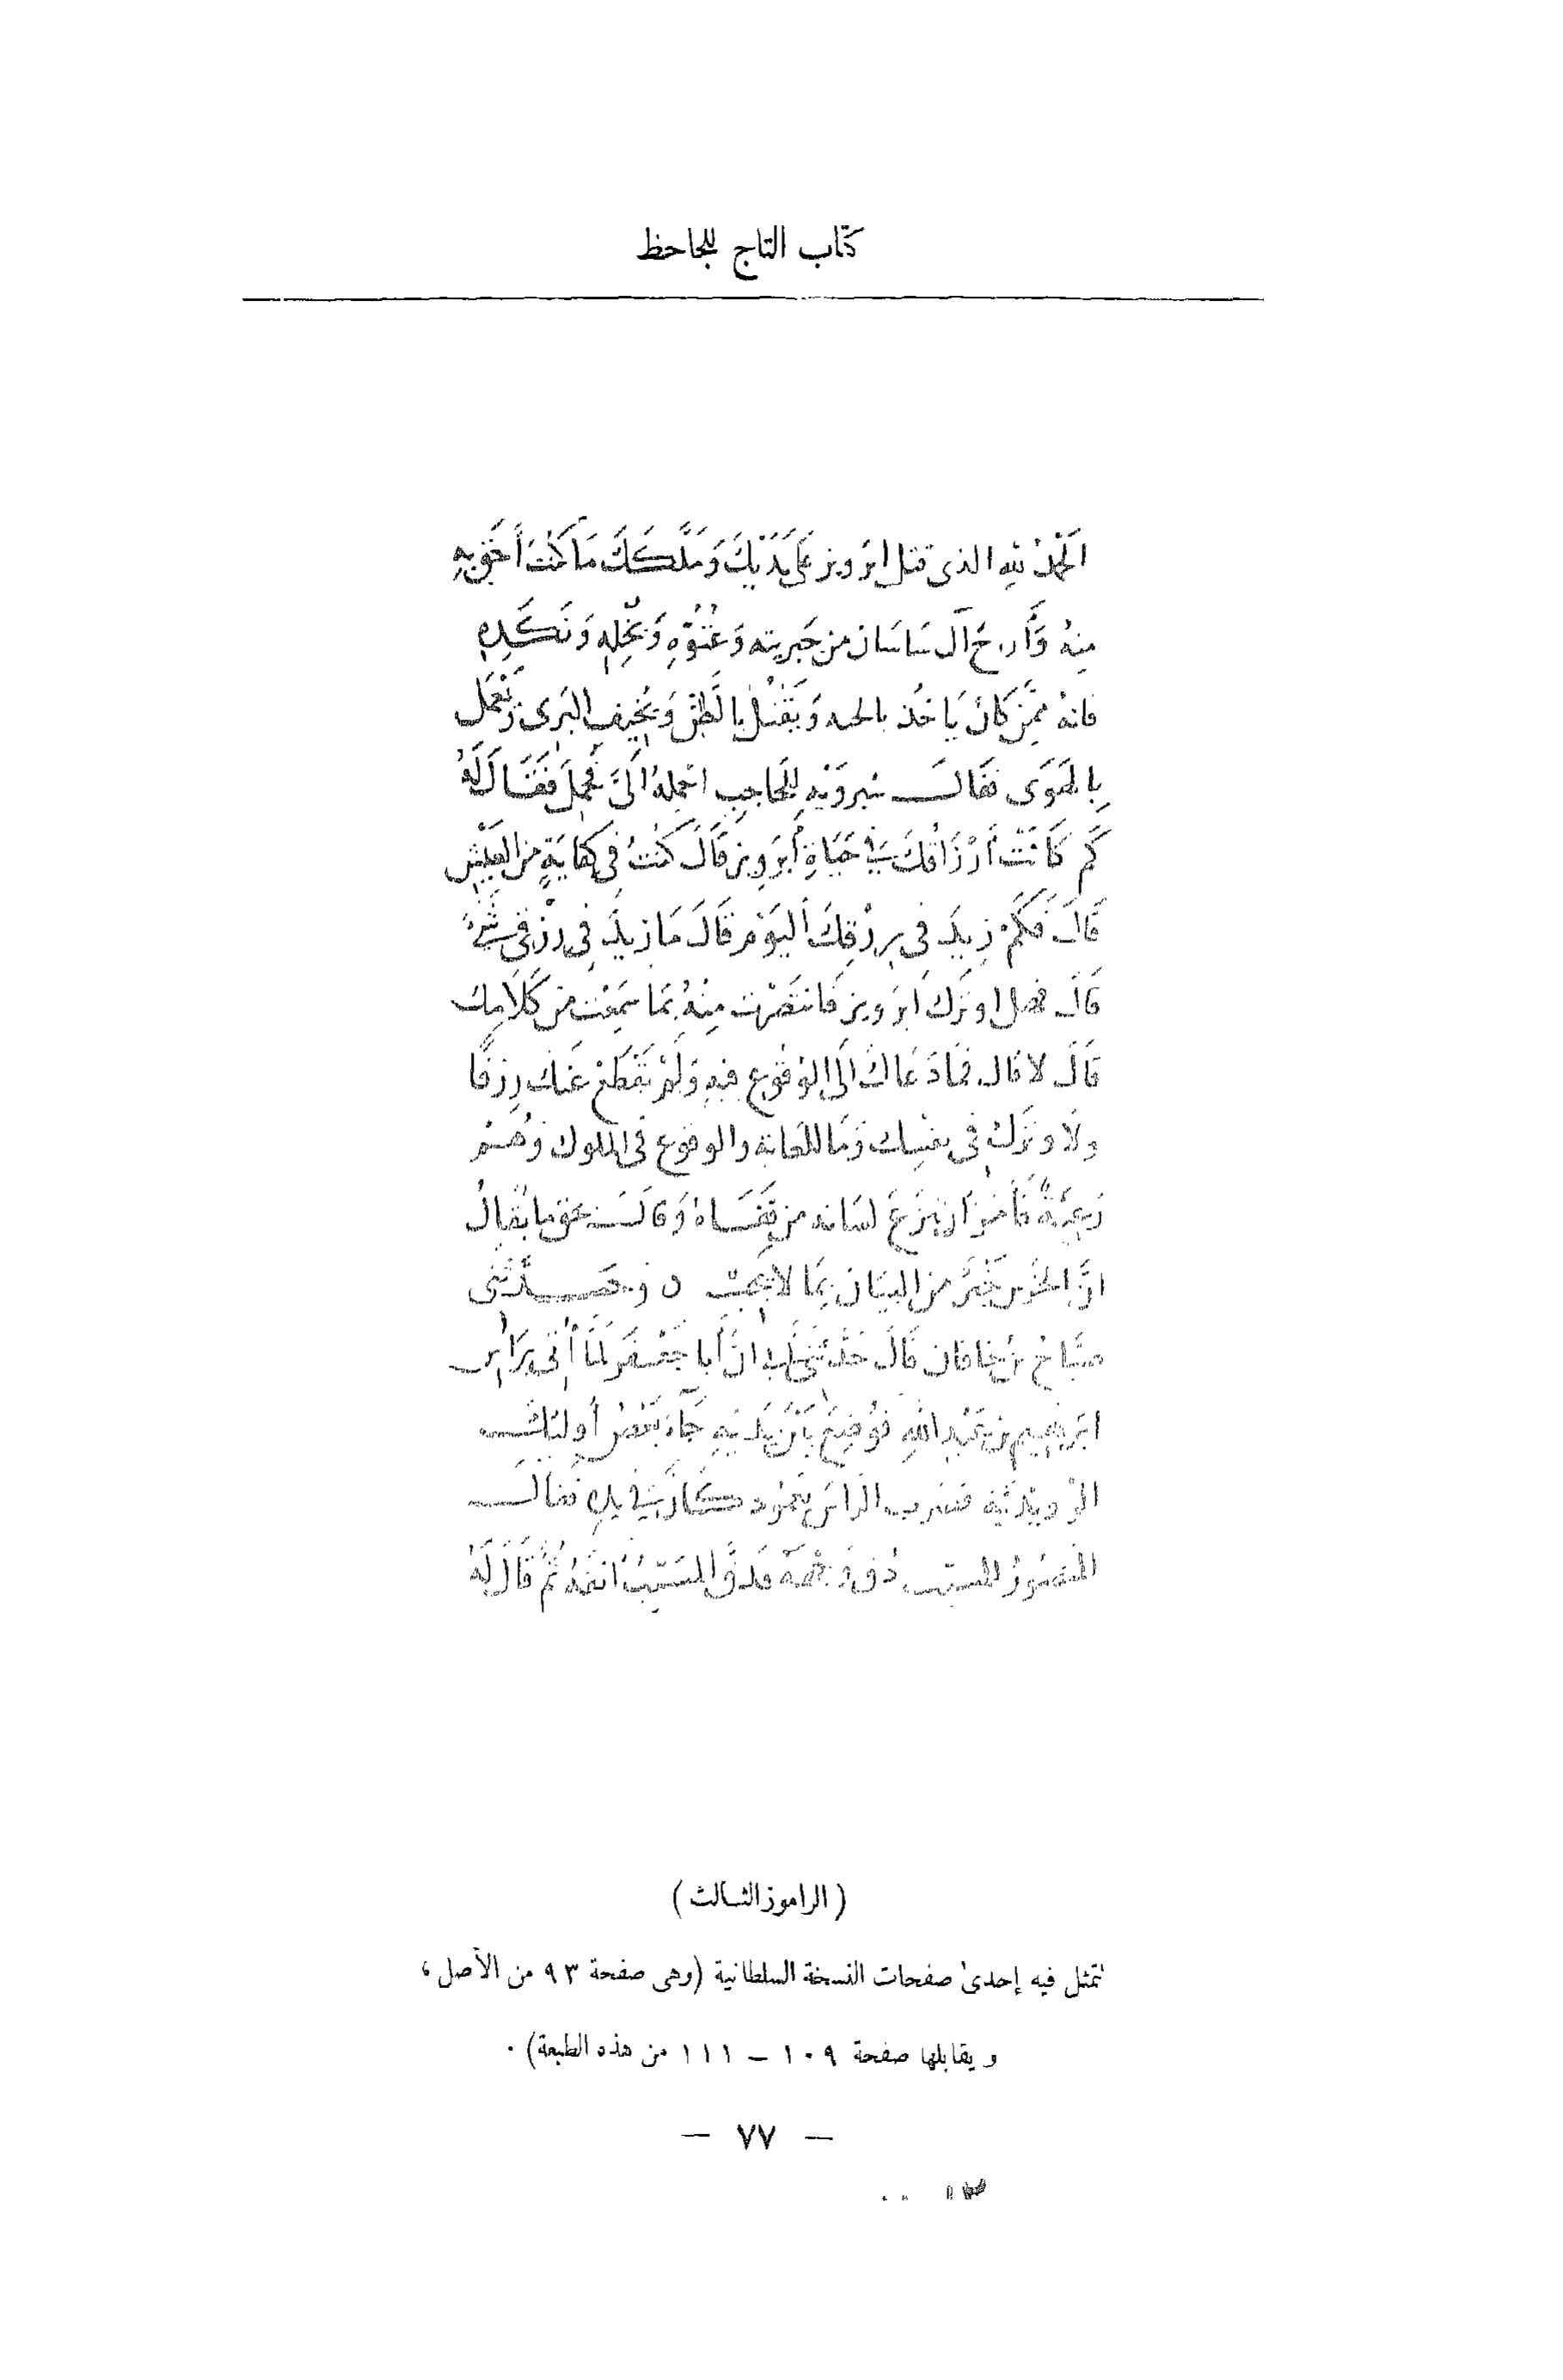 كتاب التاج للجاحظ
اَلحمدُ لله الذى قتل ابرَويز عَلى يَدَيْكَ وَمَلَّكَكَ مَا كُنْتَ أَحَقَّ بِهِ
مِنهُ وَأَراحَ آلَ سَاسَان من جَبريته وَعُتُوِّهِ وَبُخْلِهِ وَنَكَدِهِ
فانهُ مِمَّن كَانَ يَاخُذ بالحه وَيَقْتُلُ بِالظَّنِّ وَيُخِيفُ البَرِى وَيَعْمَل
بِالهَوَى فقَالَ شيرويهِ لِلحَاجِبِ احْمِلهُ الَىَّ فحُمِلَ فَقَالَ لَهُ
كَم كَانَتْ أَرْزَاقُكَ فى حَيَاةِ أَبَرويز قَالَ كُنْتُ فى كفَايَةٍ من العَيْشِ
قَالَ فَكَمْ زِيدَ فى رزْقِكَ اَليَوْمَ قَالَ مَا زِيدَ فِى رزْقى شَىْءٌ
قَالَ فهل اوتَرَكَ ابرَويز فَانتَصَرْت مِنْهُ بمَا سَمِعْت من كَلَامِكَ
قَالَ لا قال فَمَا دَعَاكَ الَى الوُقُوع فيهِ وَلَمْ يَقْطَعْ عَنْكَ رِزقًا
ولَا وتَرَكَ فى نفسِك وَمَا للعَامّة والوقوع فى الملوك وَهُم
رَعِيَّةٌ فأَمَرَ أن يُنزَعَ لسَانه من قَفَاهُ وَقَالَ بحق مَا يُقَالُ
انَّ الخرَس خَيْرٌ من البيَان بِمَا لا يَجِبُ ٥ وحَدَّثَنى
صَبَّاح بن خاقان قَالَ حَدَّثَنى أَبى انَّ أَبا جَعْفَر لَمَّا أُتِىَ برَأس
ابرَهيم بن عَبْدِ اللهِ فوُضِعَ بَيْنَ يَدَيْهِ جَاءَ بَعْضُ أولئِكَ
الرَّوينديّة فضرب الرأس بعَمُودٍ كَانَ فى يدِهِ فقال
المنصُورُ للمسيّب دُقّ وَجْهَهُ فدَقَّ المسَيّبُ انفَهُ ثُمَّ قَالَ لَهُ
(الراموز الثالث)
تتمثل فيه إحدىٰ صفحات النسخة السلطانية (وهى صفحة ٩٣ من الأصل،
ويقابلها صفحة ١٠٩ ــ ١١١ من هذه الطبعة).
— ٧٧ —